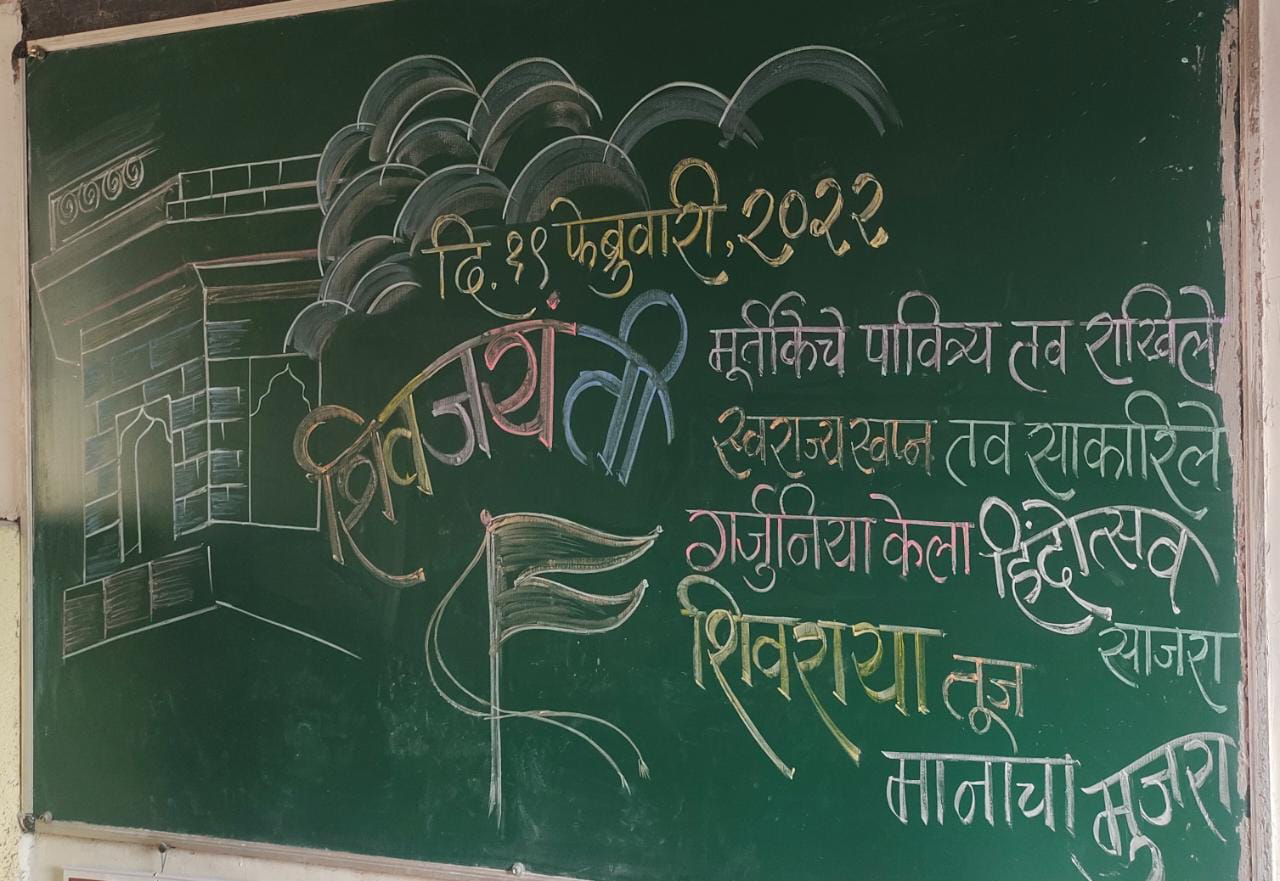 दि. १९ फेब्रुवारी, २०२२
शिवजयंती
मूर्तीकेचे पावित्र्य तव राखिले
स्वराज्य स्वप्न तव साकारिले
गर्जुनिया केला हिंदोत्सव
साजरा
शिवराया तूज
मानाचा मुजरा